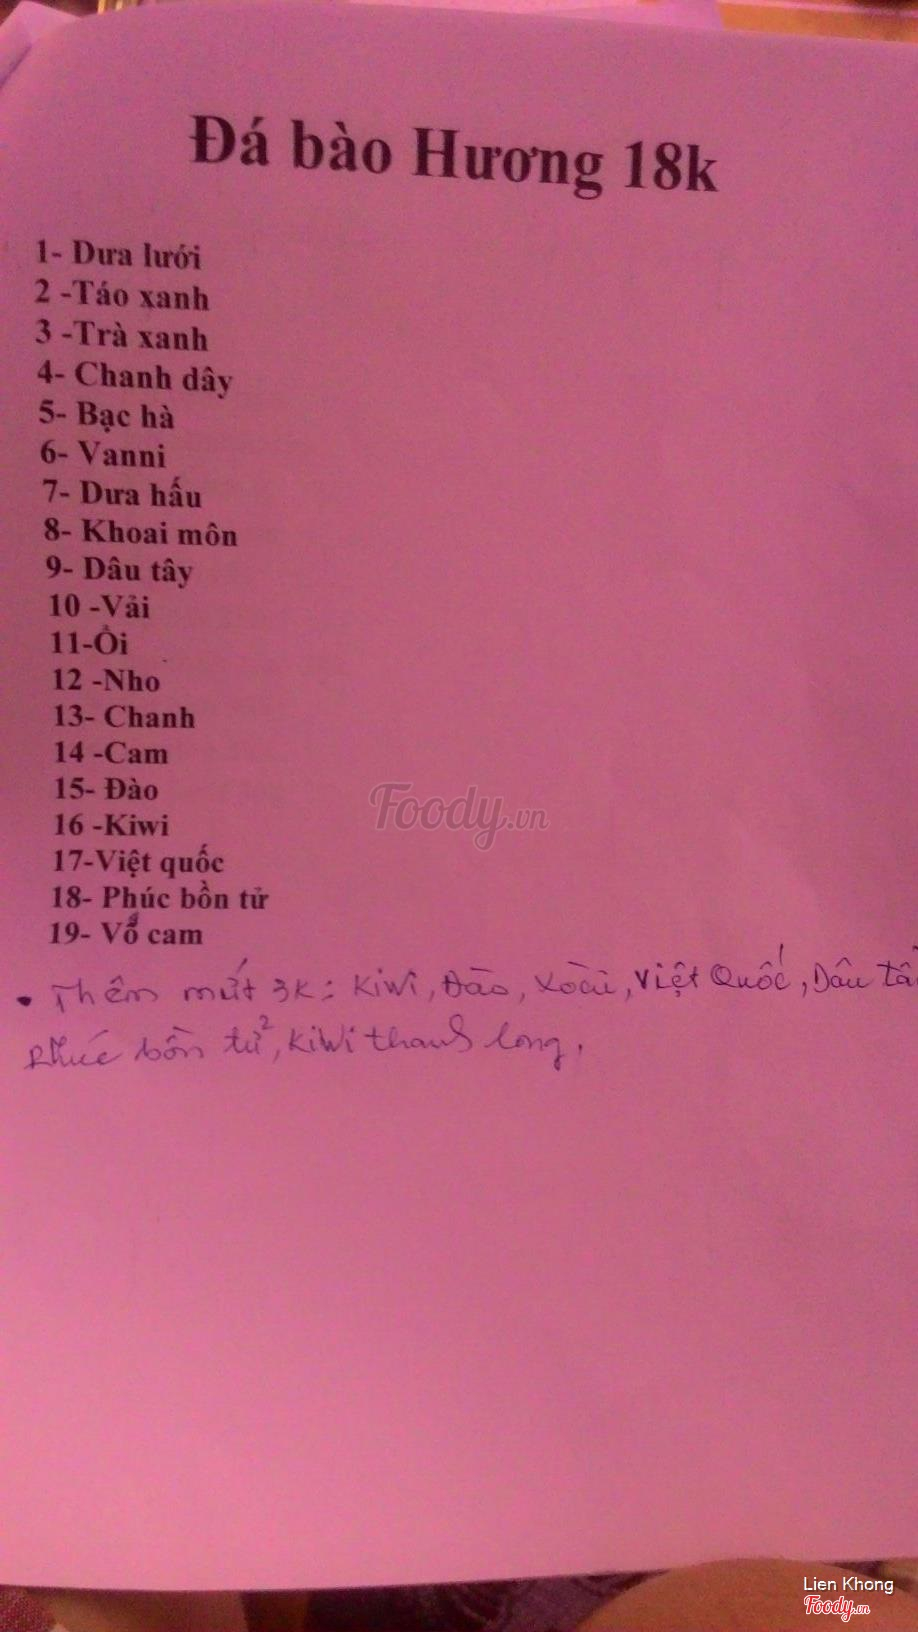 Đá bào Hương 18k
1- Dưa lưới
2 -Táo xanh
3 -Trà xanh
4- Chanh dây
5- Bạc hà
6- Vanni
7- Dưa hấu
8- Khoai môn
9- Dâu tây
10 -Vải
11-Ổi
12 -Nho
13- Chanh
14 -Cam
15- Đào
16 -Kiwi
17-Việt quốc
18- Phúc bồn tử
19- Vỏ cam
• Thêm mứt 3K: Kiwi, Đào, Xoài, Việt Quốc, Dâu
Phúc bồn tử, Kiwi thanh long.
Foody.vn
Lien Khong
Foody.vn